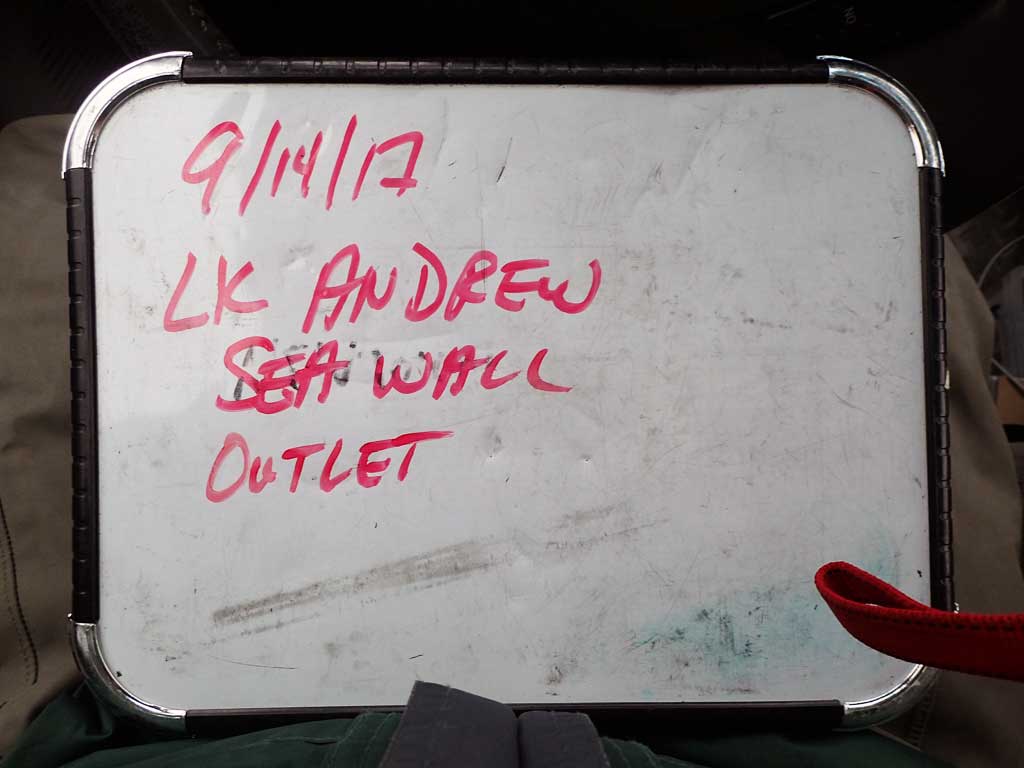 9/14/17
LK ANDREW
SEAWALL
OUTLET